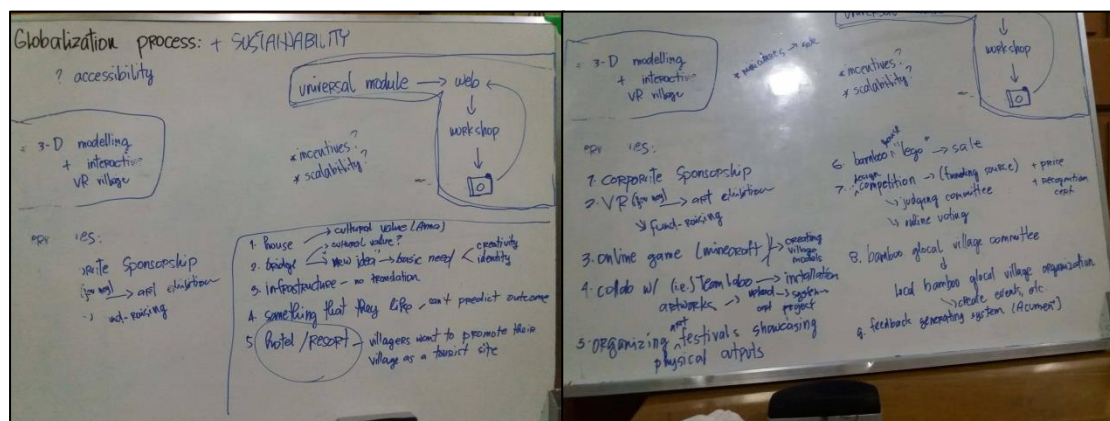 Globalization process: + SUSTAINABILITY
? accessibility
3-D modelling
+ interactive
VR village
universal module → web
↓
workshop
↓
* incentives?
* scalability?
Sponsorship
→ art exhibition
1. house → cultural value (Arno)
2. bridge → cultural value?
"new idea" → basic need < creativity
identity
3. infrastructure - no translation
4. something that they like - can't predict outcome
5. hotel / RESORT - villagers want to promote their
village as a tourist site
universal module
3-D modelling
+ interactive
VR village
→ sale
* incentives?
* scalability?
workshop
↓
1. CORPORATE Sponsorship
2. VR → art exhibition
↘ fund-raising
3. online game (minecraft) → creating
village
models
4. collab w/ (i.e.) Team Labo → installation
artworks → upload → system
art project
5. organizing art festivals showcasing
physical outputs
6. bamboo "lego" → sale
7. design competition → (funding source)
+ prize
+ recognition
cert
↘ judging committee
↘ online voting
8. bamboo glocal village committee
↓
local bamboo glocal village organization
↘ create events, etc.
9. feedback generating system (Acumen)